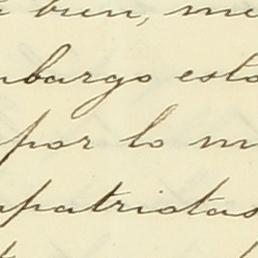 bien, me
mbargo esto
por lo m
mpatriotas